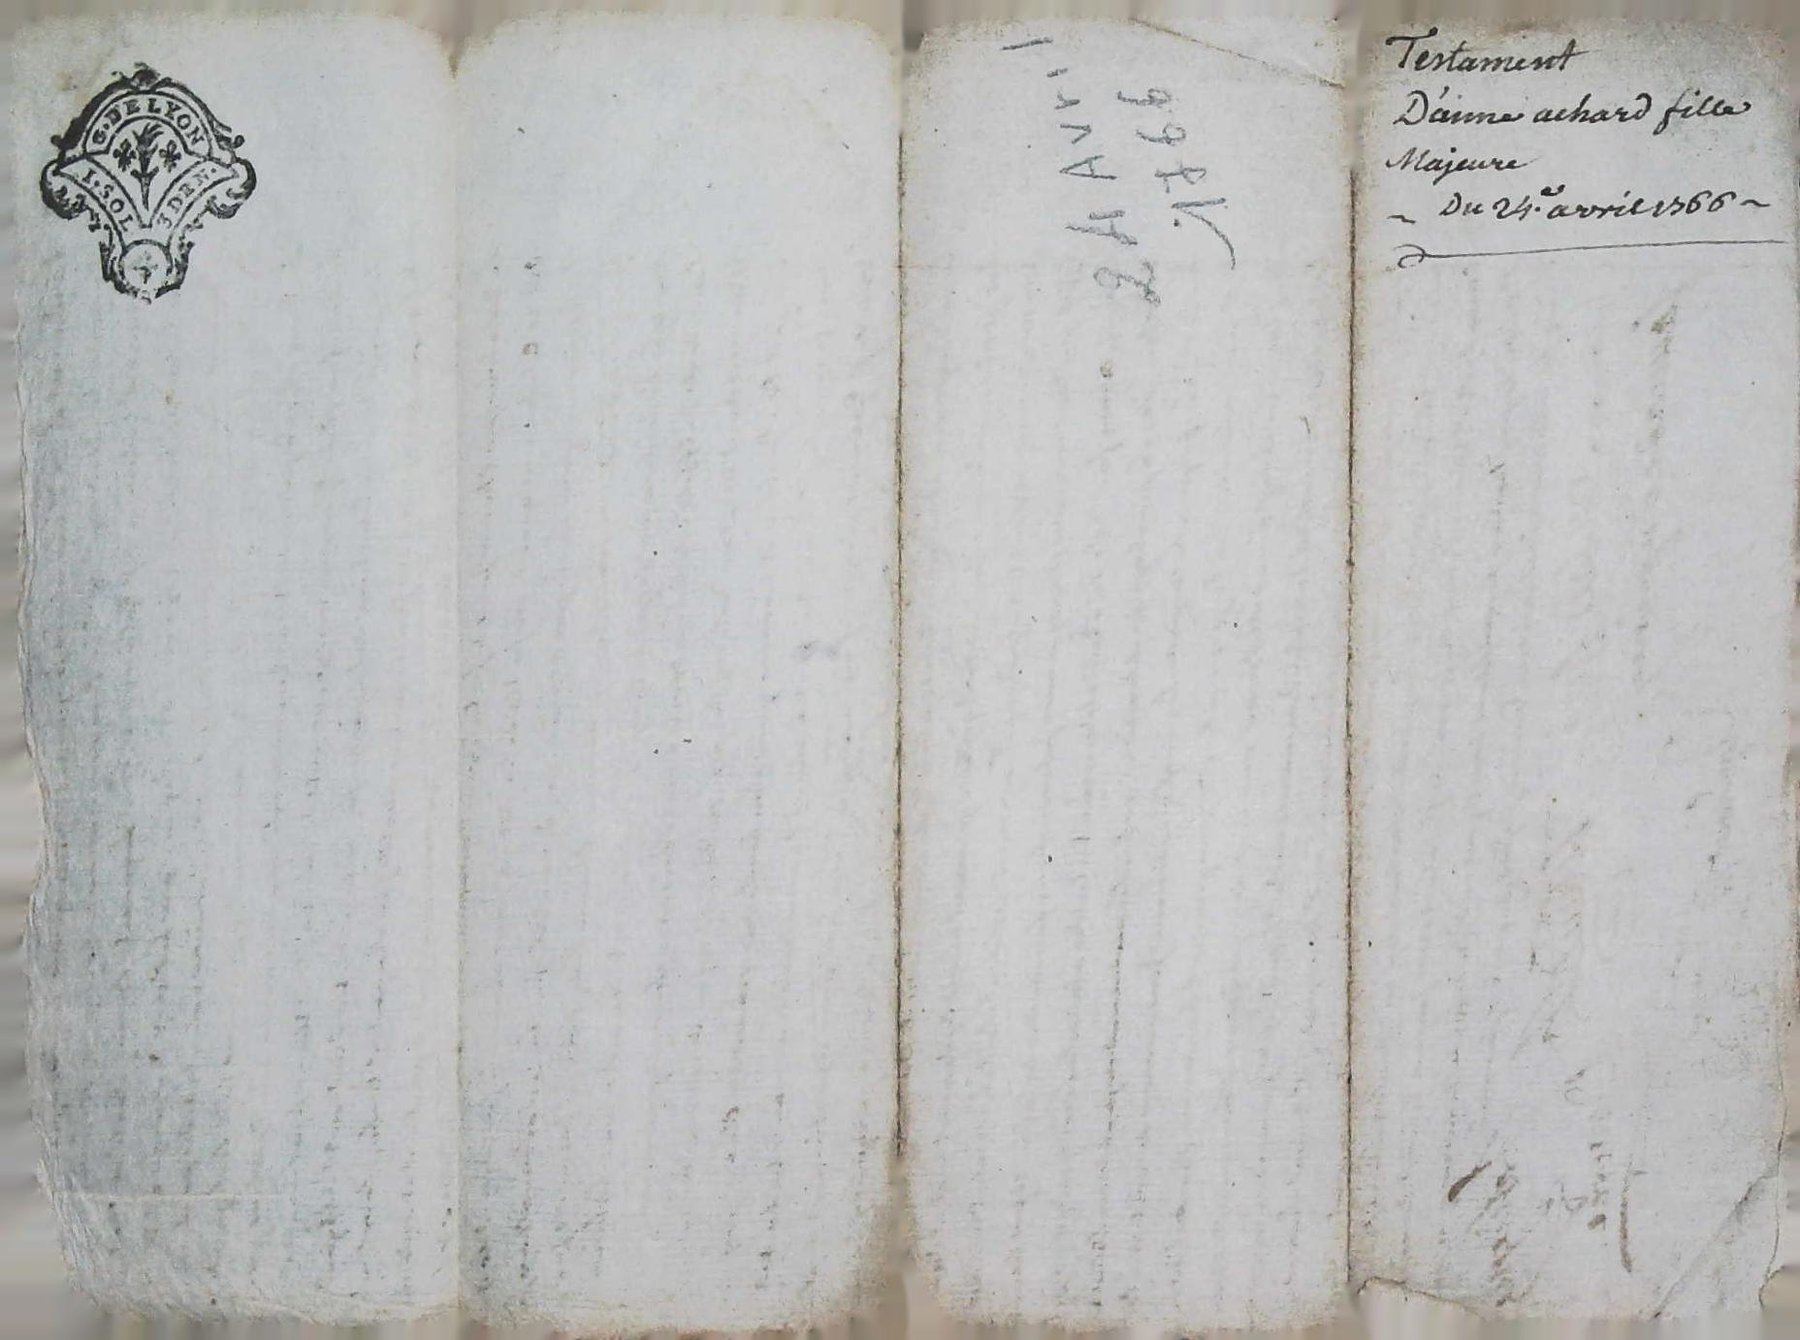 G. DE LYON
I. SOL 3 DEN.
24 Avril
1766
Testament
D'anne achard fille
Majeure
~ Du 24.e avril 1766 ~